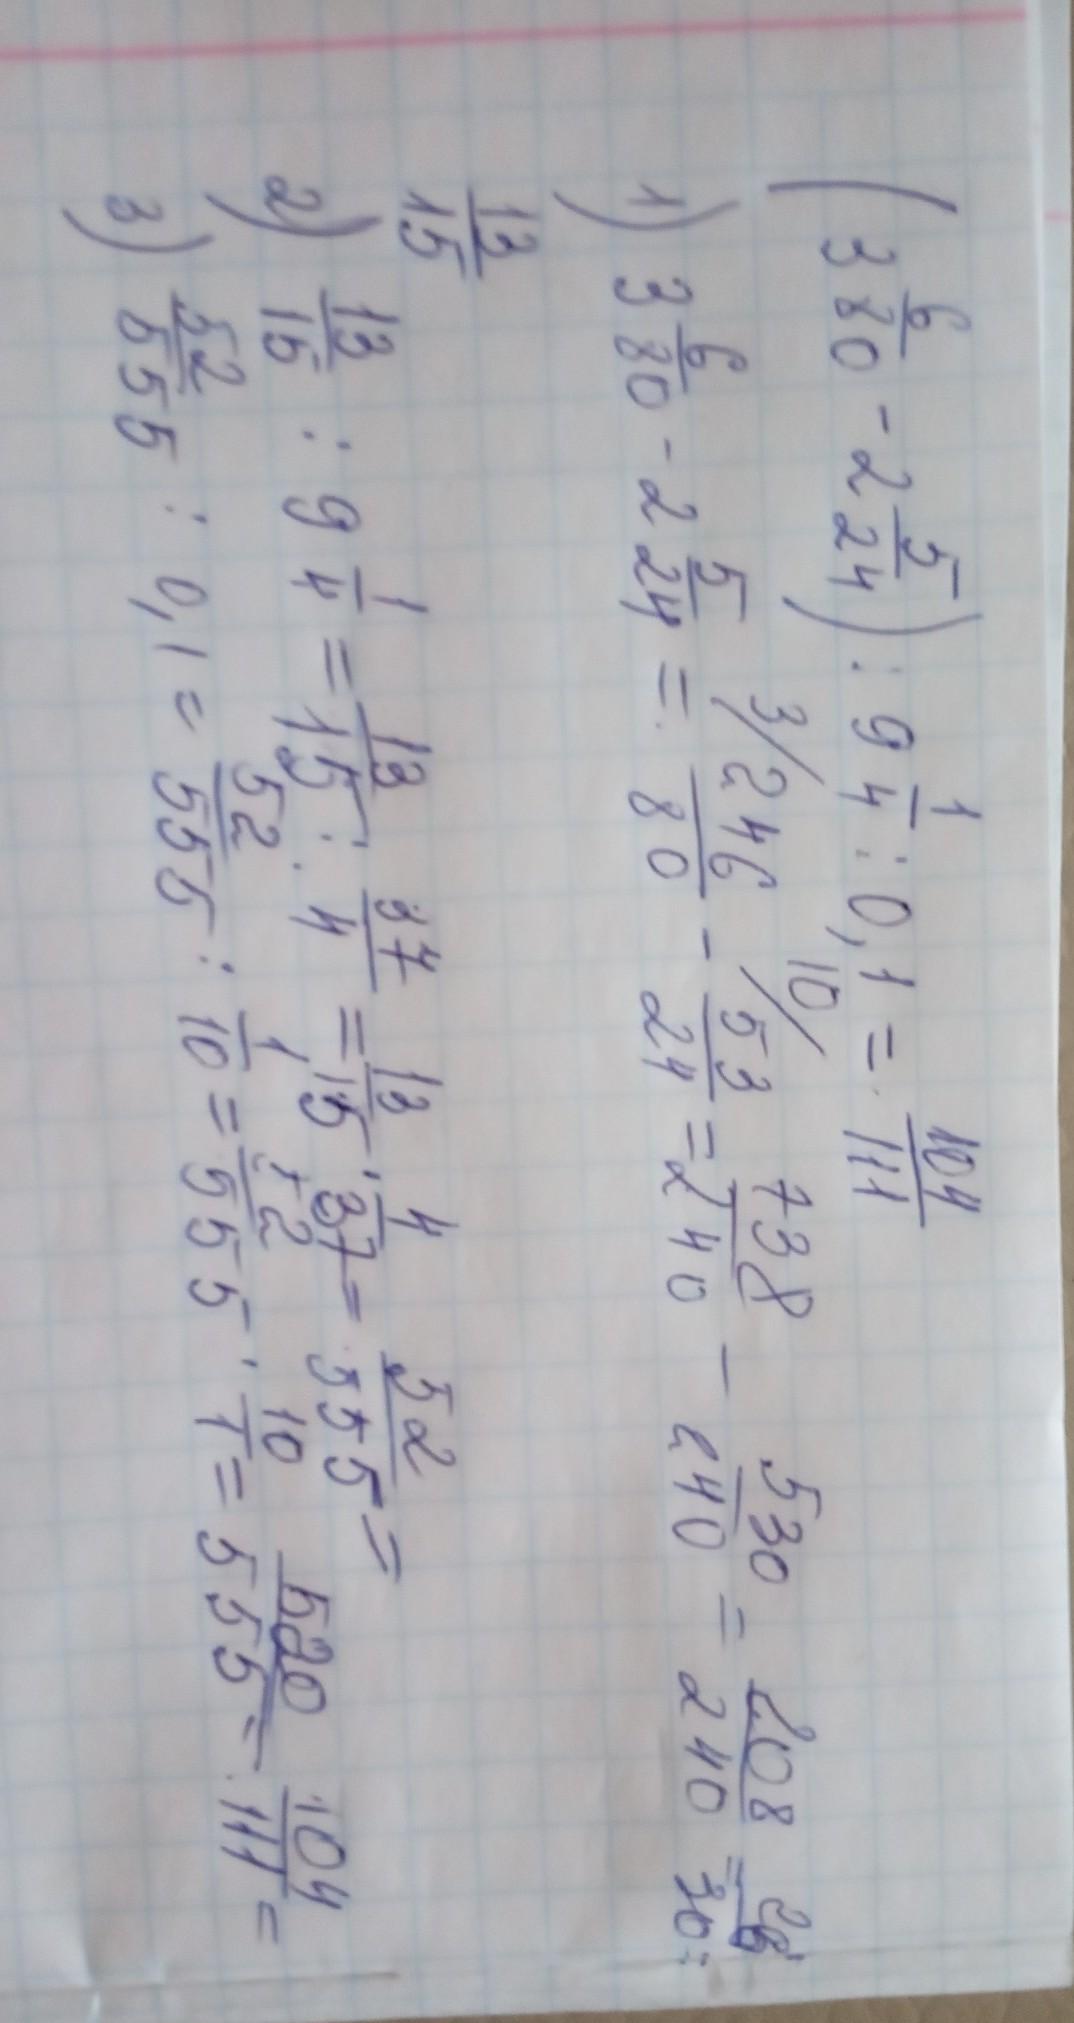 (3 6/80 - 2 5/24) : 9 1/4 : 0,1 = 104/111
1) 3 6/80 - 2 5/24 = 3/ 246/80 - 10/ 53/24 = 738/240 - 530/240 = 208/240 = 26/30 =
13/15
2) 13/15 : 9 1/4 = 13/15 : 37/4 = 13/15 · 4/37 = 52/555 =
3) 52/555 : 0,1 = 52/555 : 1/10 = 52/555 · 10/1 = 520/555 = 104/111 =